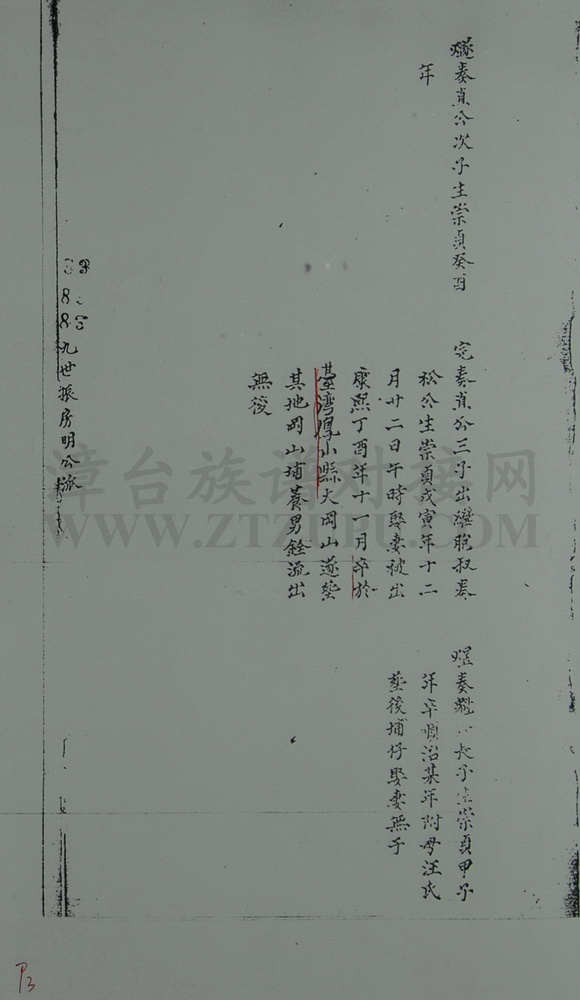 奏貞公次子生崇貞癸酉
年
完奏貞公三子出繼胞叔奏
松公生崇貞戊寅年十二
月廿二日午時娶妻被出
康熙丁酉年十一月卒於
臺灣鳳山縣大岡山遂塟
其地岡山埔養男銓流出
無後
煜奏 長子生崇貞甲子
年卒順治某年附母汪氏
塟後埔仔娶妻無子
九世振房明公派
漳台族谱对接网
WWW.ZTZUPU.COM
P3